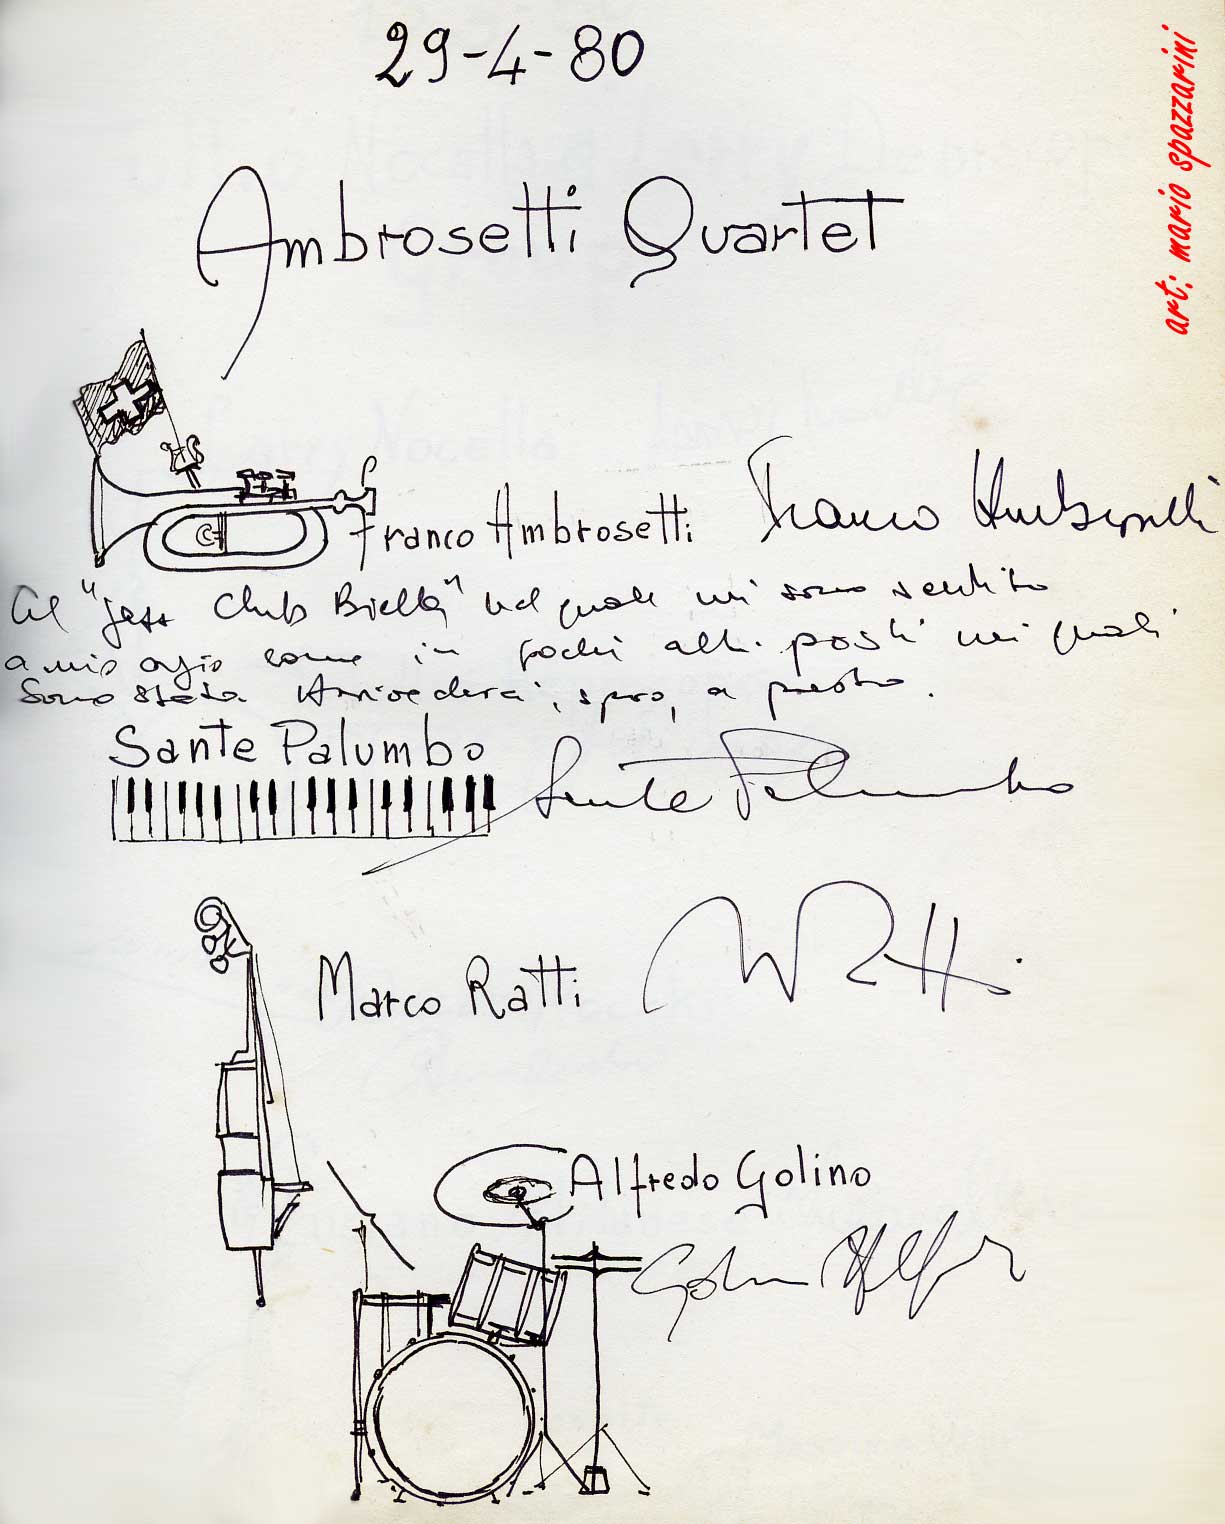 29-4-80
art: mario spazzarini
Ambrosetti Quartet
Franco Ambrosetti
Franco Ambrosetti
Al "Jazz Club Biella" nel quale mi sono sentito
a mio agio come in pochi altri posti nei quali
sono stato. Arrivederci, spero, a presto.
Sante Palumbo
Sante Palumbo
Marco Ratti
M Ratti
Alfredo Golino
Golino Alfredo